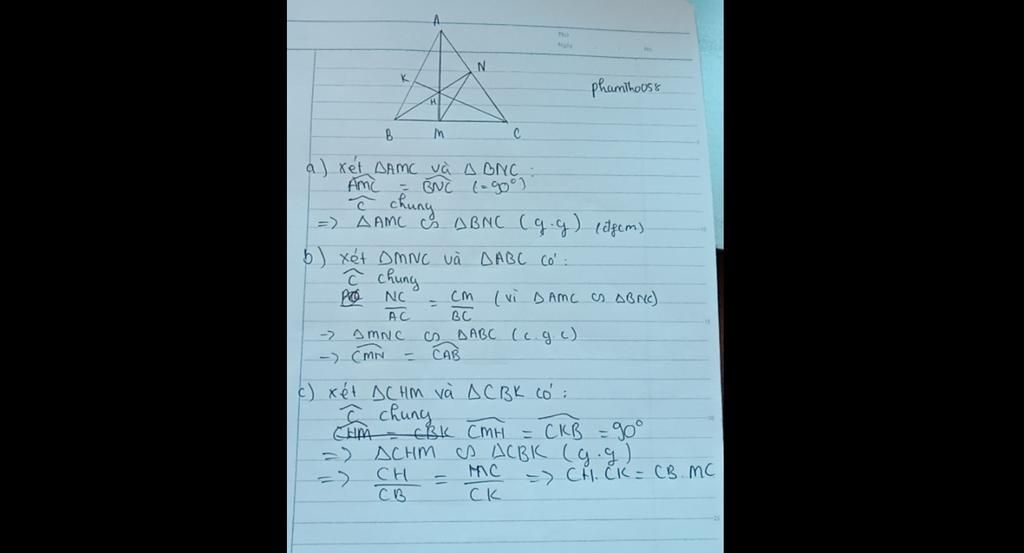 A
K
N
H
B
M
C
Thứ
Ngày
No.
phamtho058
a) Xét ΔAMC và ΔBNC :
AMC = BNC (=90°)
C chung
=> ΔAMC ∽ ΔBNC (g.g) (đpcm)
b) Xét ΔMNC và ΔABC có :
C chung
NC/AC = CM/BC (vì ΔAMC ∽ ΔBNC)
-> ΔMNC ∽ ΔABC (c.g.c)
-> CMN = CAB
c) Xét ΔCHM và ΔCBK có :
C chung
CHM = CBK CMH = CKB = 90°
=> ΔCHM ∽ ΔCBK (g.g)
=> CH/CB = MC/CK => CH.CK = CB.MC